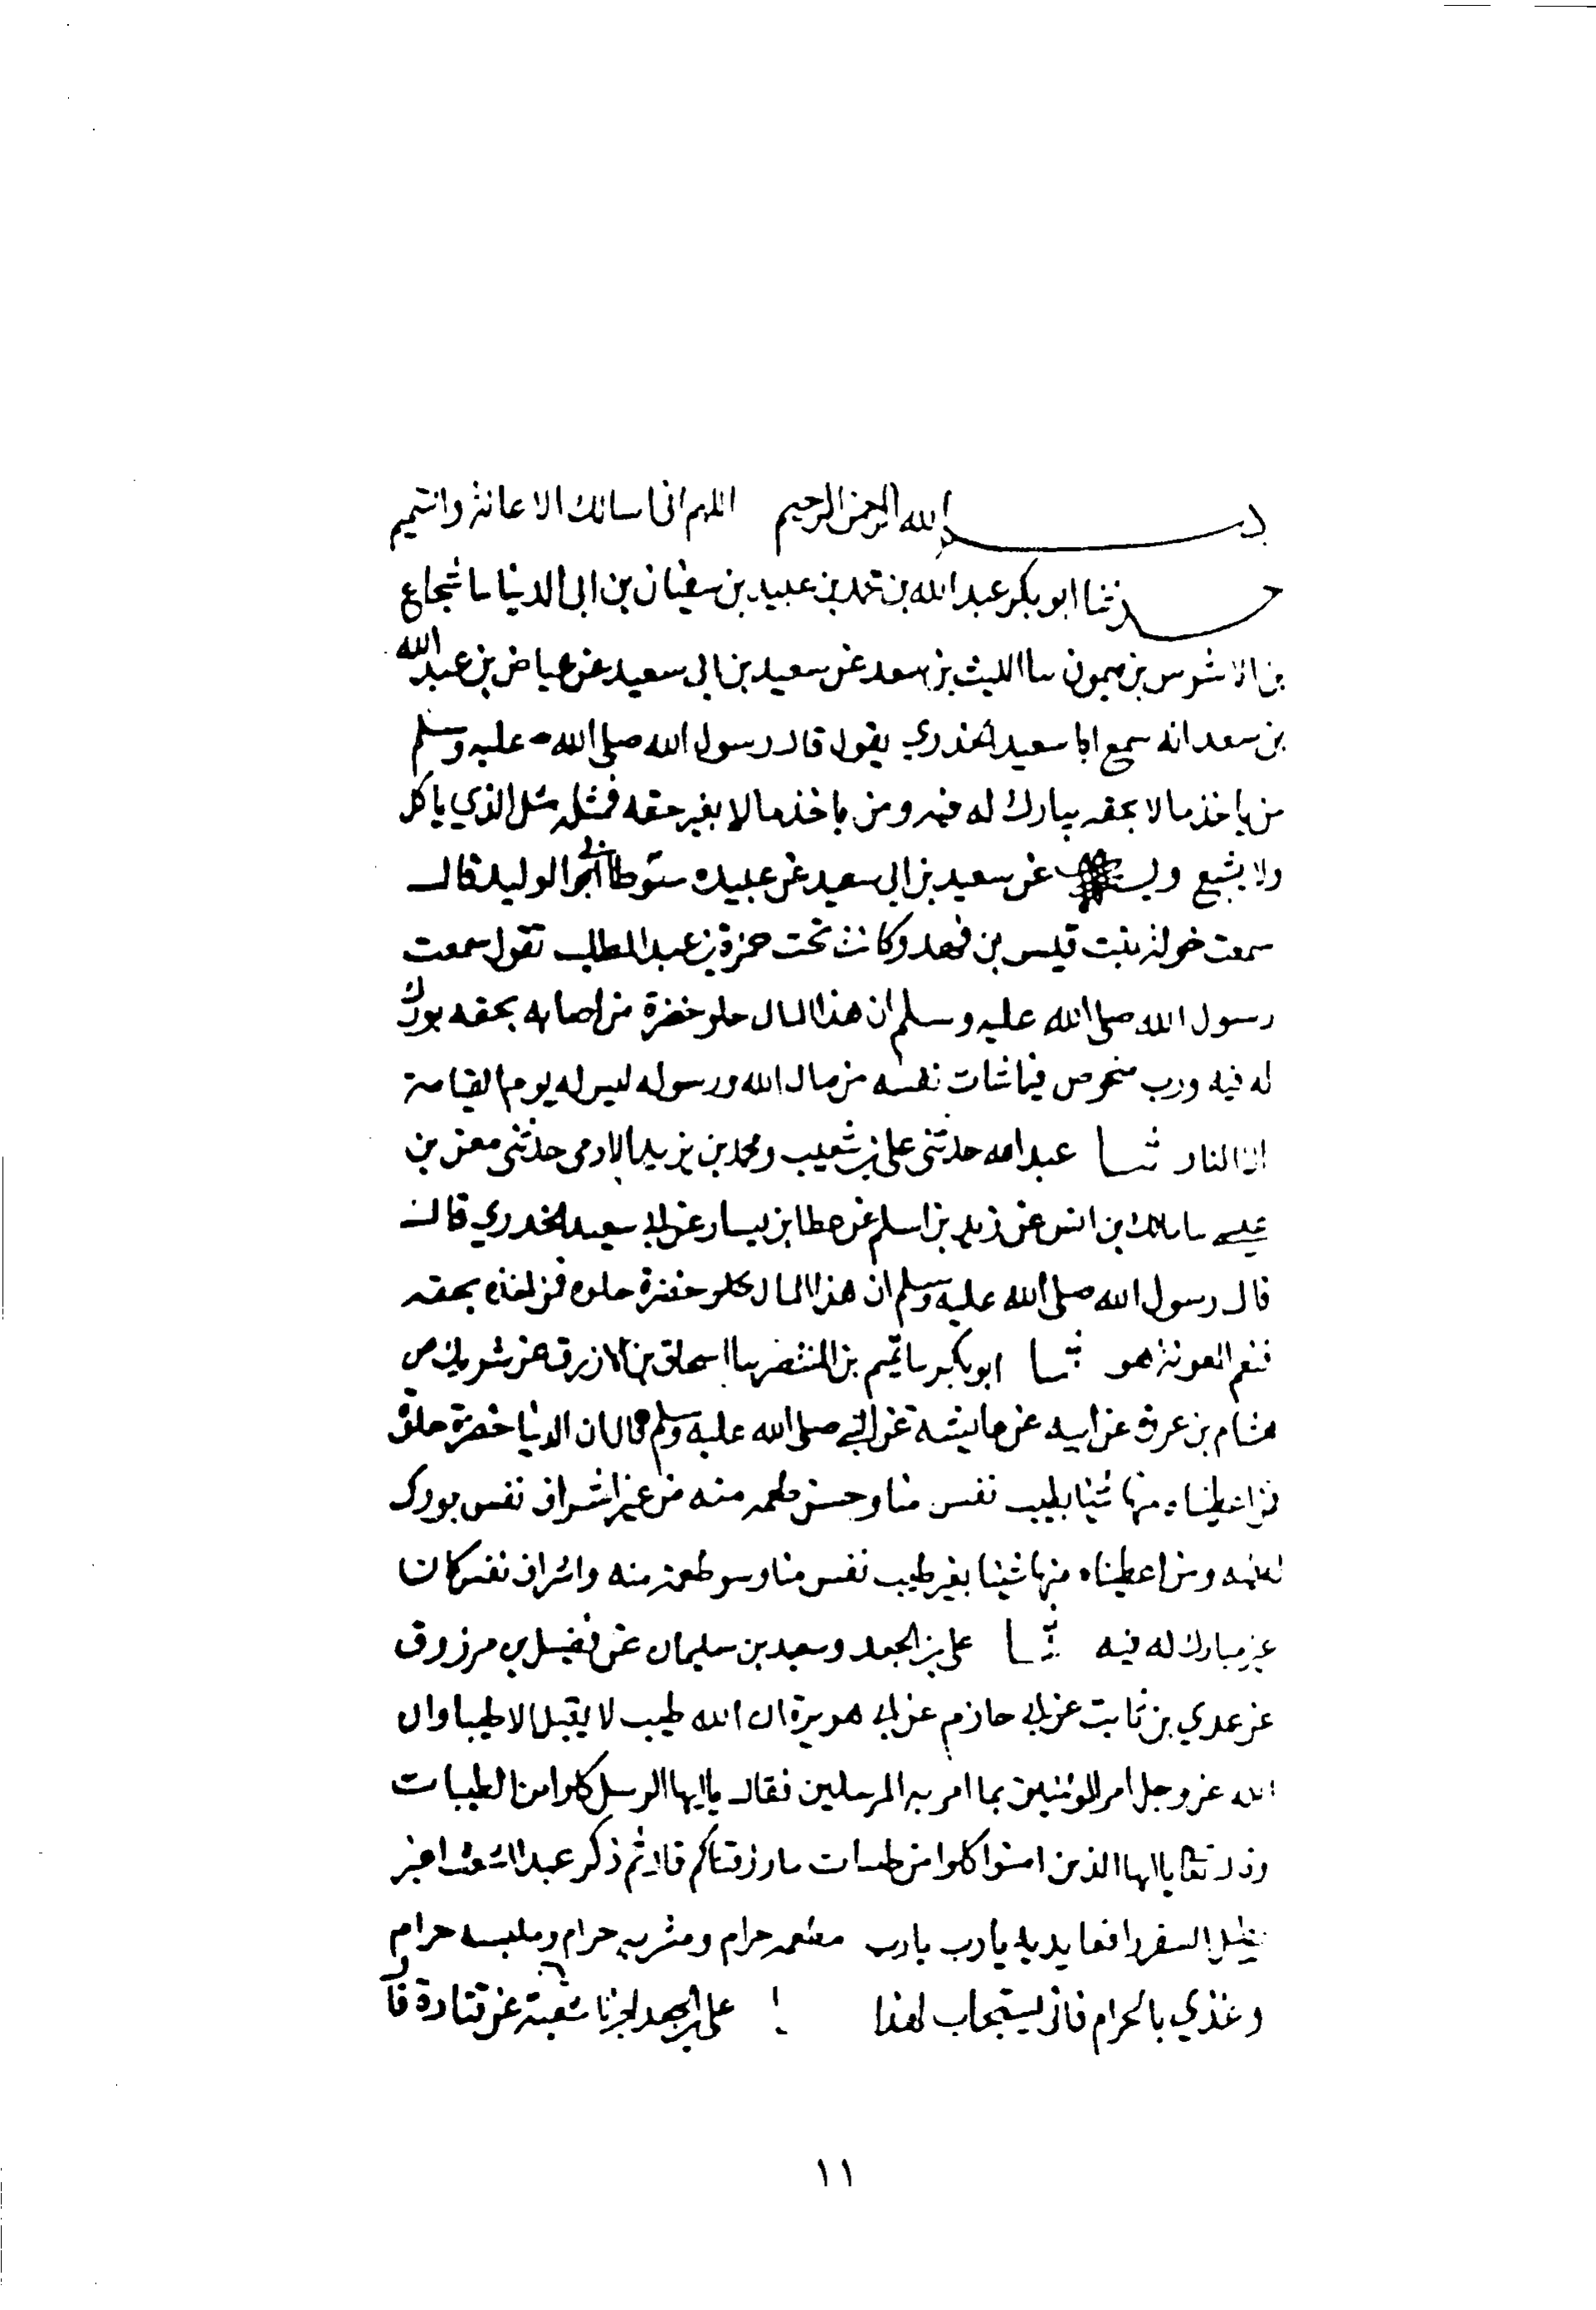 بسم الله الرحمن الرحيم اللهم انا نسالك الاعانة والتتميم
حدثنا ابو بكر عبد الله بن محمد بن عبيد بن سفيان بن ابي الدنيا سا شجاع
بن الاشرس بن ميمون سا الليث بن سعد عن سعيد بن ابي سعيد عن عياض بن عبد الله
بن سعد انه سمع ابا سعيد الخذري يقول قال رسول الله صلى الله عليه وسلم
من ياخذ مالا بحقه يبارك له فيه ومن ياخذ مالا بغير حقه فمثله مثل الذي ياكل
ولا يشبع عن سعيد بن ابي سعيد عن عبيده سنوطا ابي الوليد قال
سمعت خولة بنت قيس بن فهد وكانت تحت حمزة بن عبد المطلب تقول سمعت
رسول الله صلى الله عليه وسلم ان هذا المال حلو خضرة من اصابه بحقه بورك
له فيه ورب متخوض فيما شات نفسه من مال الله ورسوله ليس له يوم القيامة
الا النار ثنا عبد الله حدثني علي بن شعيب ومحمد بن يزيد الادمي حدثني معن بن
عيسى سا مالك بن انس عن زيد بن اسلم عن عطا بن يسار عن ابي سعيد الخدري قال
قال رسول الله صلى الله عليه وسلم ان هذا المال حلو خضرة حلوه فمن اخذه بحقه
فنعم المعونة هو ثنا ابو بكر سا تميم بن المنتصر سا اسحاق بن الازرق عن شريك عن
هشام بن عروة عن ابيه عن عايشة عن النبي صلى الله عليه وسلم قال ان الدنيا خضرة حلوة
فمن اعطيناه منها شيئا بطيب نفس منا وحسن طعمه منه من غير اشراف نفس بورك
له فيه ومن اعطيناه منها شيئا بغير طيب نفس منا وسو طعمة منه واشراف نفس كان
غير مبارك له فيه ثنا علي بن الجعد وسعيد بن سليمان عن فضيل بن مرزوق
عن عدي بن ثابت عن ابي حازم عن ابي هويرة ان الله طيب لا يقبل الا طيبا وان
الله عز وجل امر المومنين بما امر به المرسلين فقال يا ايها الرسل كلوا من الطيبات
وقال تعا يا ايها الذين امنوا كلوا من طيبات ما رزقناكم قال ثم ذكر عبدا اشعث اغبر
يطيل السفر رافعا يديه يا رب يا رب مطعمه حرام ومشربه حرام وملبسه حرام
وغذي بالحرام فاني يستجاب لهذا علي بن الجعد اخبرنا شعبة عن قتادة قال
١١